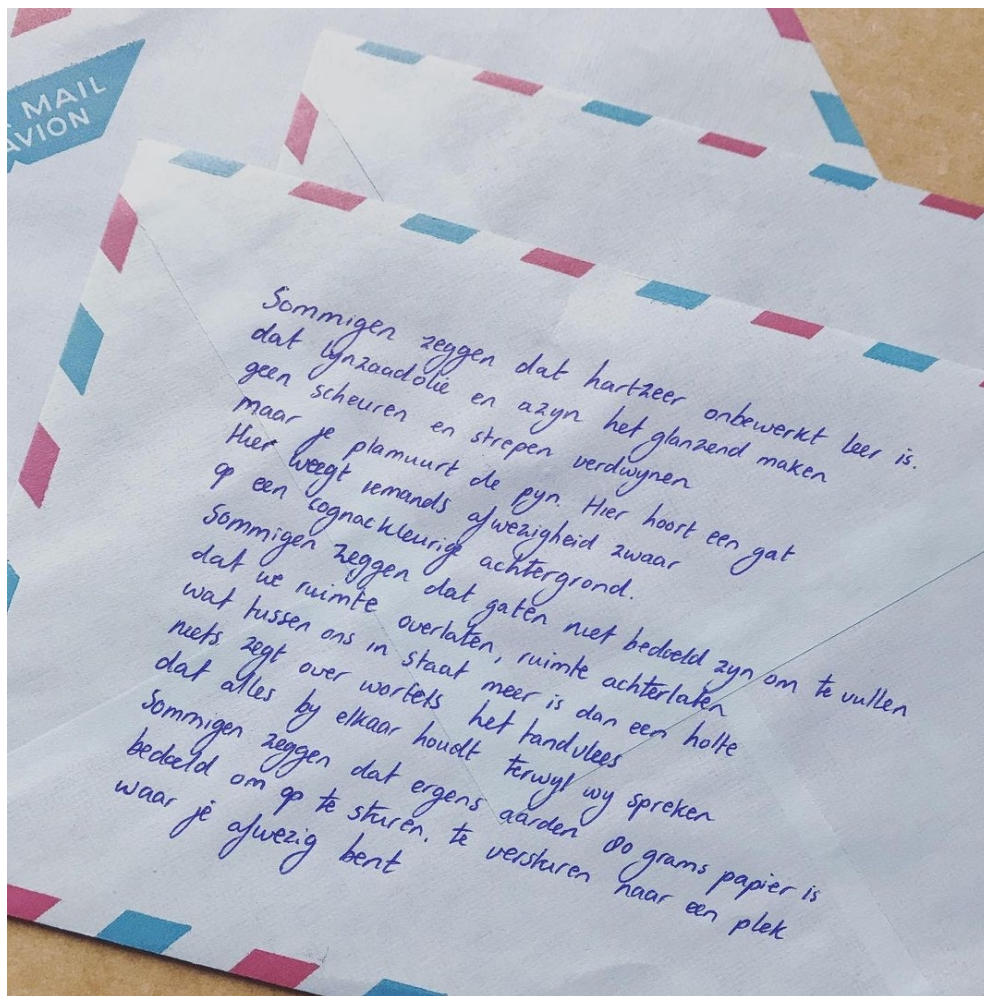 MAIL
AVION
Sommigen zeggen dat hartzeer onbewerkt leer is.
dat lijnzaadolie en azijn het glanzend maken
geen scheuren en strepen verdwijnen
maar je plamuurt de pijn. Hier hoort een gat
Hier weegt iemands afwezigheid zwaar
op een cognackleurige achtergrond.
Sommigen zeggen dat gaten niet bedoeld zijn om te vullen
dat we ruimte overlaten, ruimte achterlaten
wat tussen ons in staat meer is dan een holte
niets zegt over wortels het tandvlees
dat alles bij elkaar houdt terwijl wij spreken
Sommigen zeggen dat ergens aarden 80 grams papier is
bedoeld om op te sturen, te versturen naar een plek
waar je afwezig bent